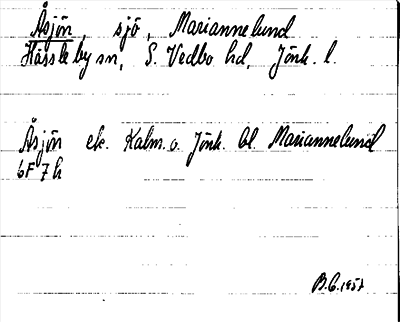 Åsjön, sjö, Mariannelund
Hässleby sn, S. Vedbo hd, Jönk. l.
Åsjön ek. Kalm. o. Jönk. bl. Mariannelund
6F 7h
B.C. 1957